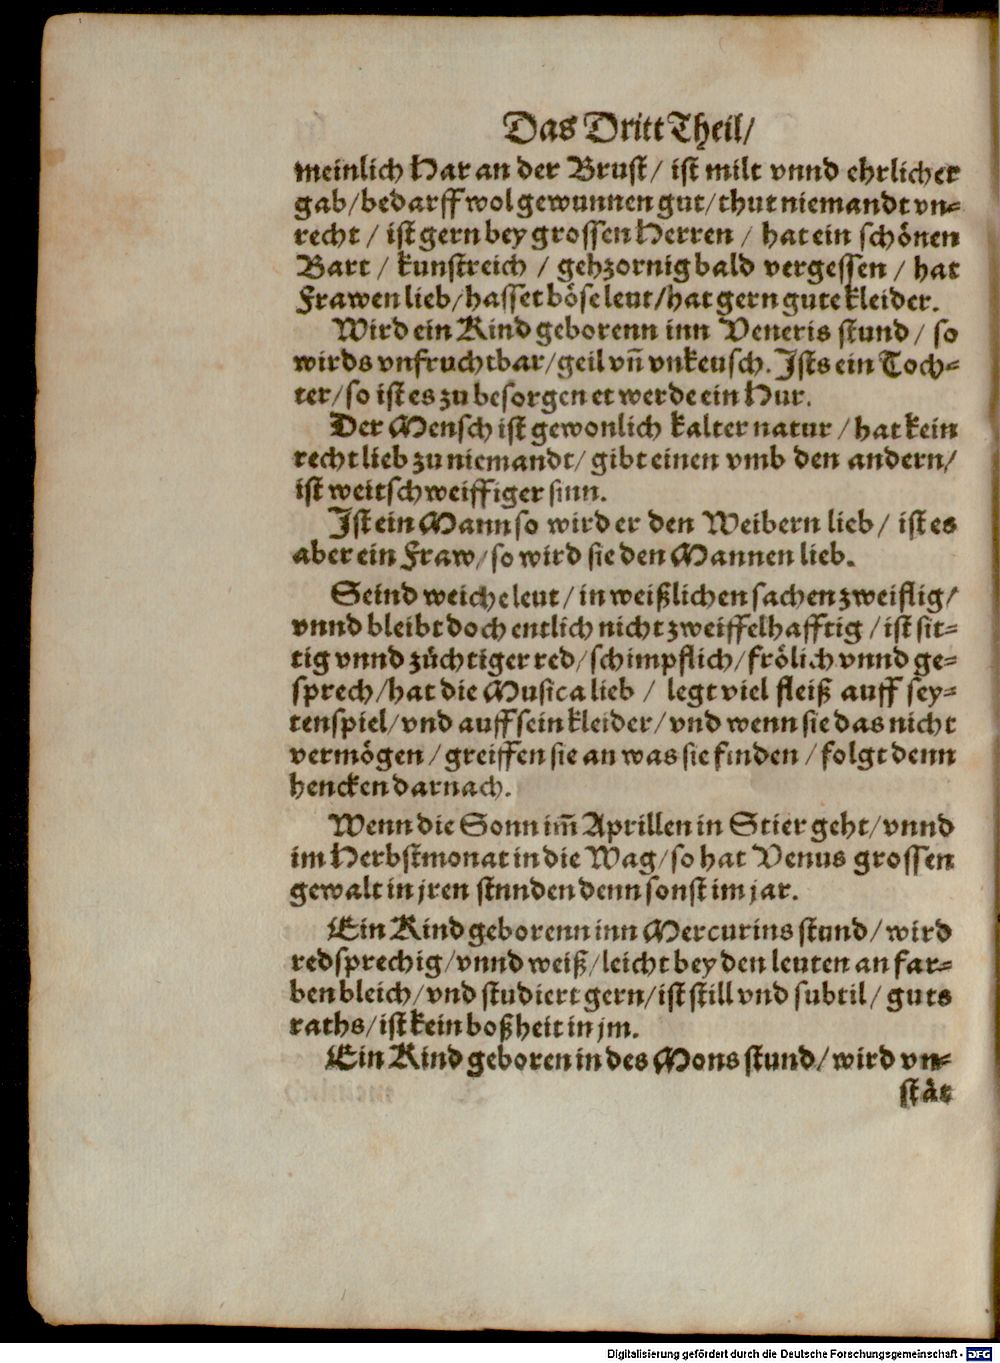 Das Dritt Theil/
meinlich Har an der Brust/ ist milt vnnd ehrlicher
gab/bedarff wol gewunnen gut/thut niemandt vn-
recht / ist gern bey grossen Herren / hat ein schönen
Bart / kunstreich / gehzornig bald vergessen / hat
Frawen lieb/hasset böse leut/hat gern gute kleider.
Wird ein Kind geborenn inn Veneris stund / so
wirds vnfruchtbar/geil vn̄ vnkeusch. Ists ein Toch-
ter/so ist es zu besorgen et werde ein Hur.
Der Mensch ist gewonlich kalter natur / hat kein
recht lieb zu niemandt/ gibt einen vmb den andern/
ist weitschweiffiger sinn.
Ist ein Mann so wird er den Weibern lieb/ ist es
aber ein Fraw/so wird sie den Mannen lieb.
Seind weiche leut/in weißlichen sachen zweiflig/
vnnd bleibt doch entlich nicht zweiffelhafftig /ist sit-
tig vnnd züchtiger red/schimpflich/frölich vnnd ge-
sprech/hat die Musica lieb / legt viel fleiß auff sey-
tenspiel/vnd auff sein kleider/vnd wenn sie das nicht
vermögen /greiffen sie an was sie finden /folgt denn
hencken darnach.
Wenn die Sonn im̄ Aprillen in Stier geht/vnnd
im Herbstmonat in die Wag/so hat Venus grossen
gewalt in jren stnnden denn sonst im jar.
Ein Kind geborenn inn Mercurins stund/wird
redsprechig/vnnd weiß/leicht bey den leuten an far-
ben bleich/vnd studiert gern/ist still vnd subtil/guts
raths/ist kein boßheit in jm.
Ein Kind geboren in des Mons stund/wird vn-
stät
Digitalisierung gefördert durch die Deutsche Forschungsgemeinschaft - DFG